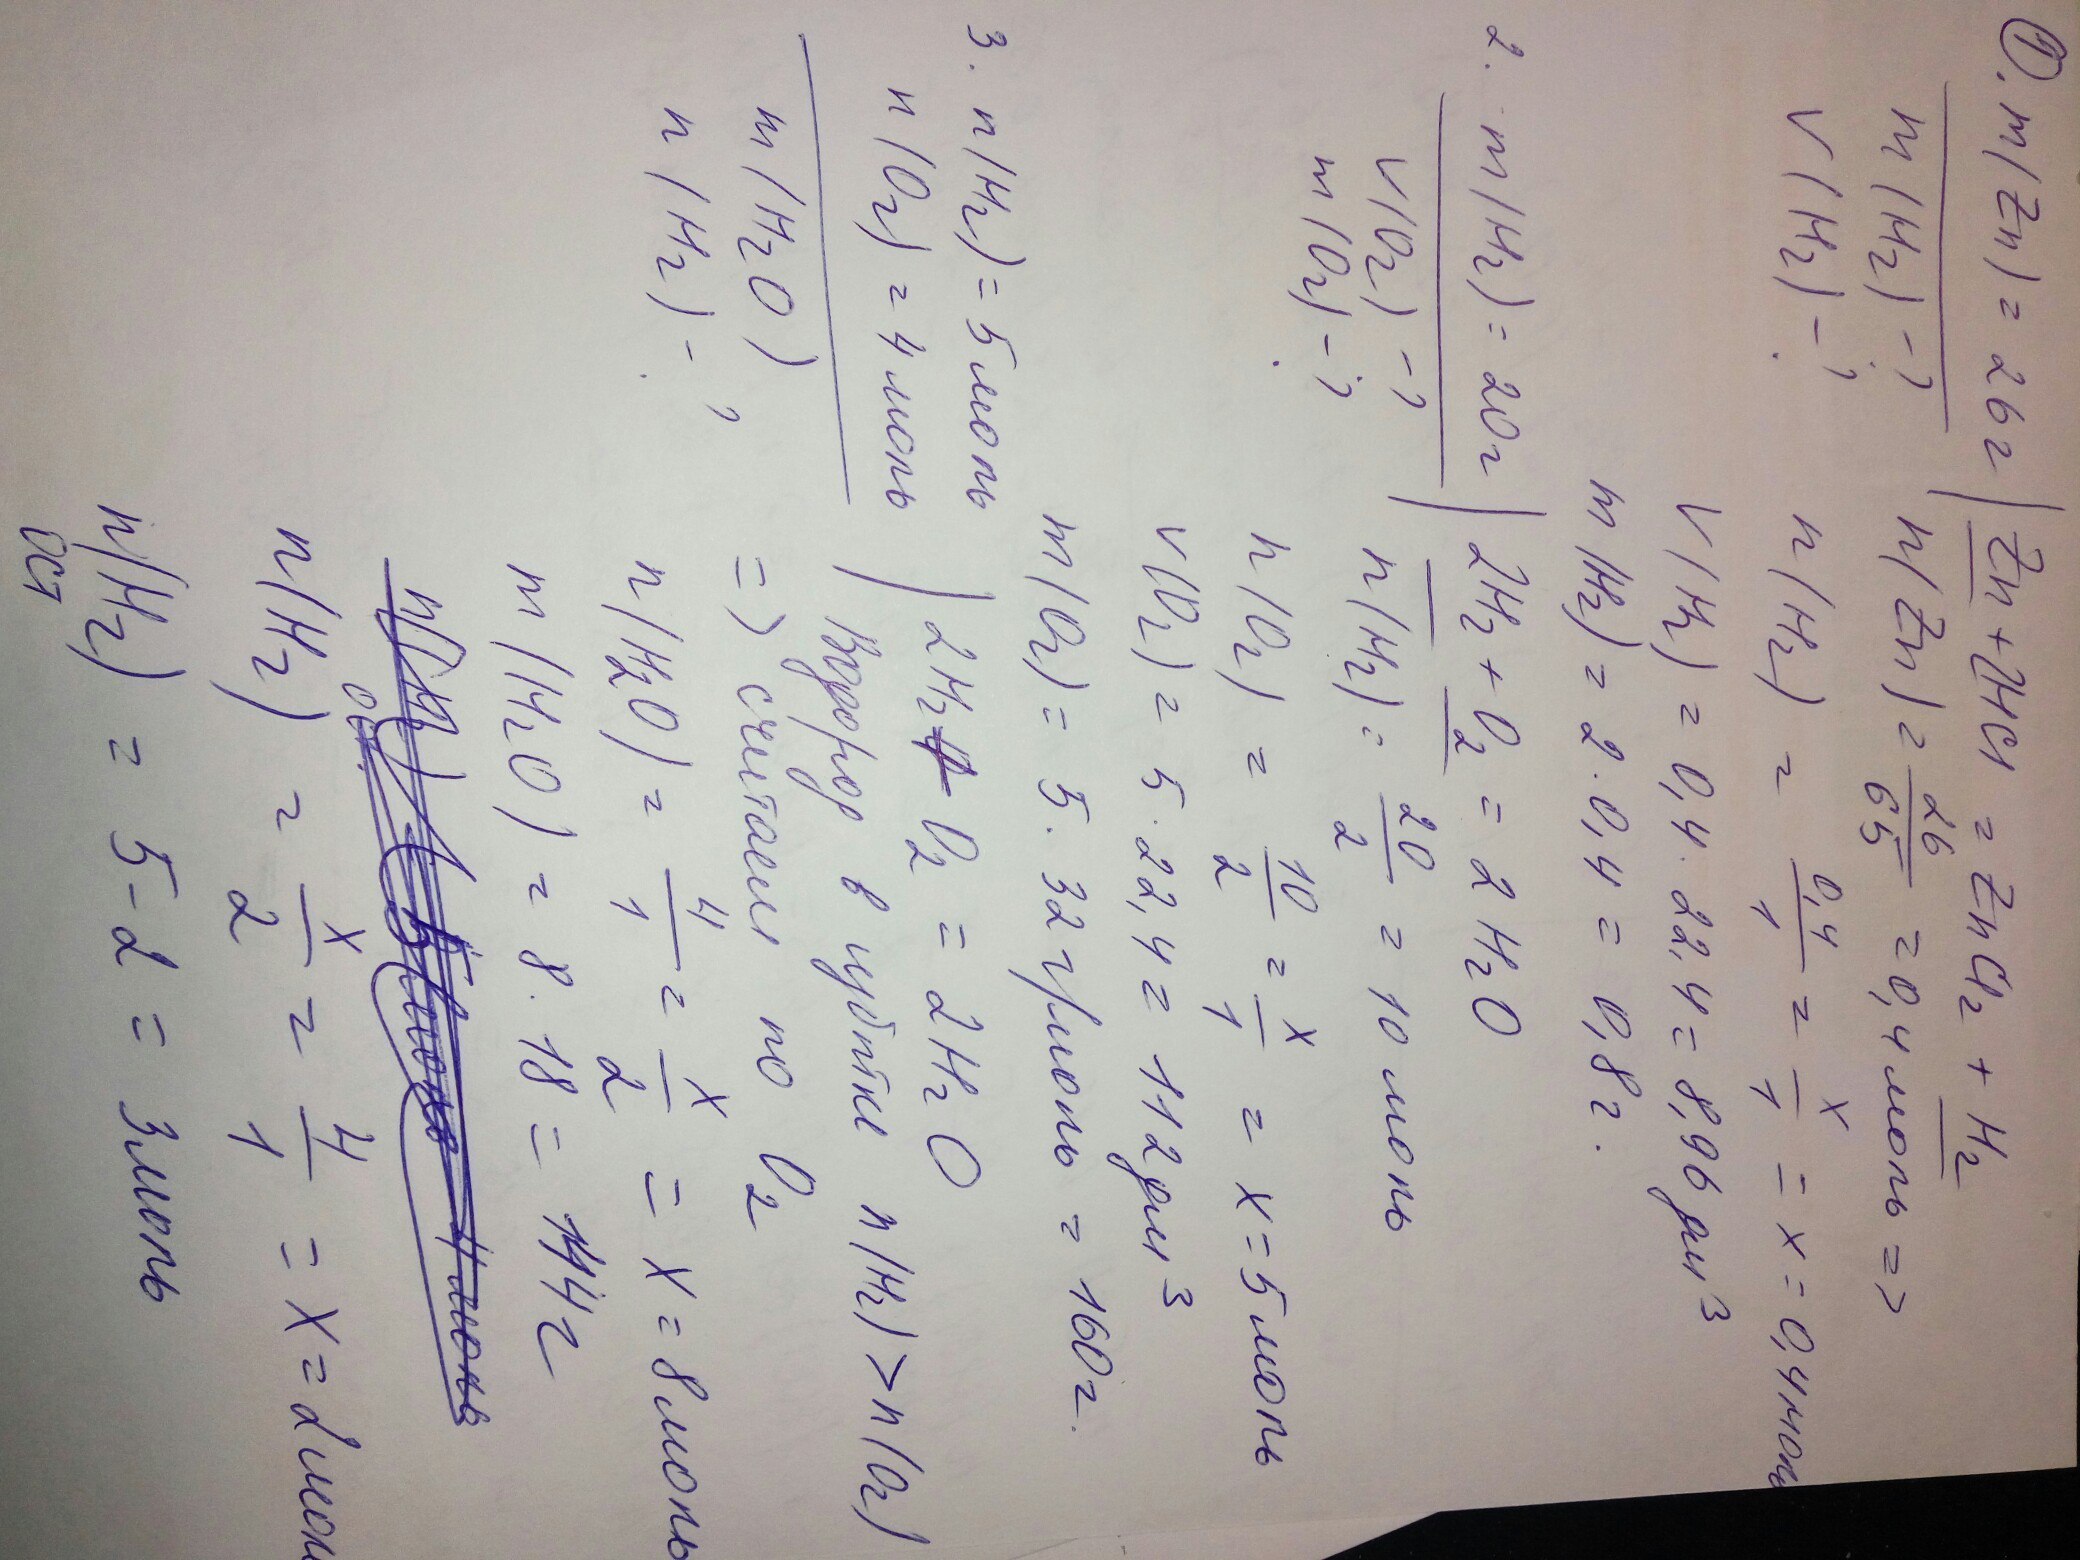 1. m(Zn) = 26г | Zn + 2HCl = ZnCl₂ + H₂
m(H₂) - ?
V(H₂) - ?
n(Zn) = 26/65 = 0,4 моль =>
n(H₂) = 0,4/1 = x/1 = x = 0,4 моль
V(H₂) = 0,4 · 22,4 = 8,96 дм³
m(H₂) = 2 · 0,4 = 0,8 г.
2. m(H₂) = 20г | 2H₂ + O₂ = 2H₂O
V(O₂) - ?
m(O₂) - ?
n(H₂) = 20/2 = 10 моль
n(O₂) = 10/2 = x/1 = x = 5 моль
V(O₂) = 5 · 22,4 = 112 дм³
m(O₂) = 5 · 32 г/моль = 160 г.
3. n(H₂) = 5 моль
n(O₂) = 4 моль | 2H₂ + O₂ = 2H₂O
m(H₂O)
n(H₂) - ?
Водород в избытке n(H₂) > n(O₂)
=> считаем по O₂
n(H₂O) = 4/1 = x/2 = x = 8 моль
m(H₂O) = 8 · 18 = 144 г
n(H₂) = x/2 = 4/1 = x = 2 моль
n(H₂) ост = 5 - 2 = 3 моль